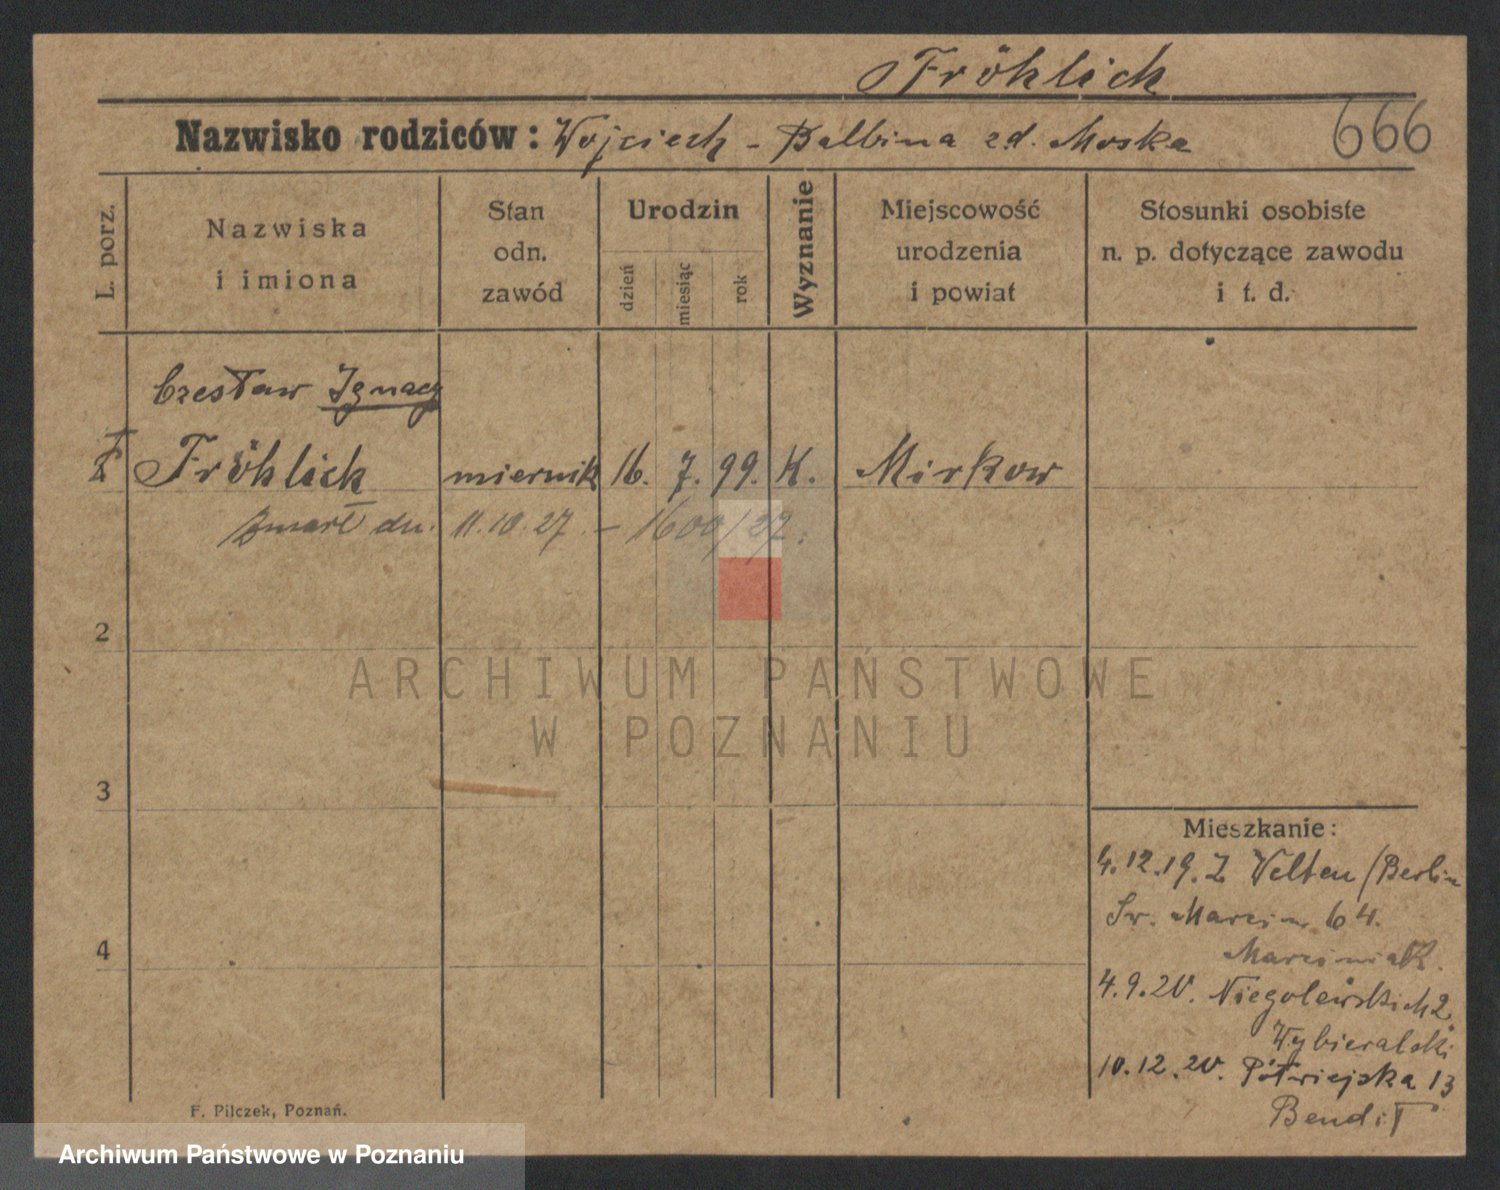 Fröhlich
Nazwisko rodziców: Wojciech - Balbina zd. Moska 666
L. porz.
Nazwiska
i imiona
Stan
odn.
zawód
Urodzin
dzień
miesiąc
rok
Wyznanie
Miejscowość
urodzenia
i powiat
Stosunki osobiste
n. p. dotyczące zawodu
i t. d.
Czesław Ignacy
Fröhlich miernik 16. 7. 99. K. Mirkow
zmarł dn. 11.10.27. - 1600/27.
2
3
4
ARCHIWUM PAŃSTWOWE
W POZNANIU
Mieszkanie:
4.12.19. Z Velten /Berlin
Św. Marcin 64.
Marciniak.
4.9.20. Niegolewskich 2.
Wybieralski
10.12.20. Półwiejska 13
Bendit
F. Pilczek, Poznań.
Archiwum Państwowe w Poznaniu